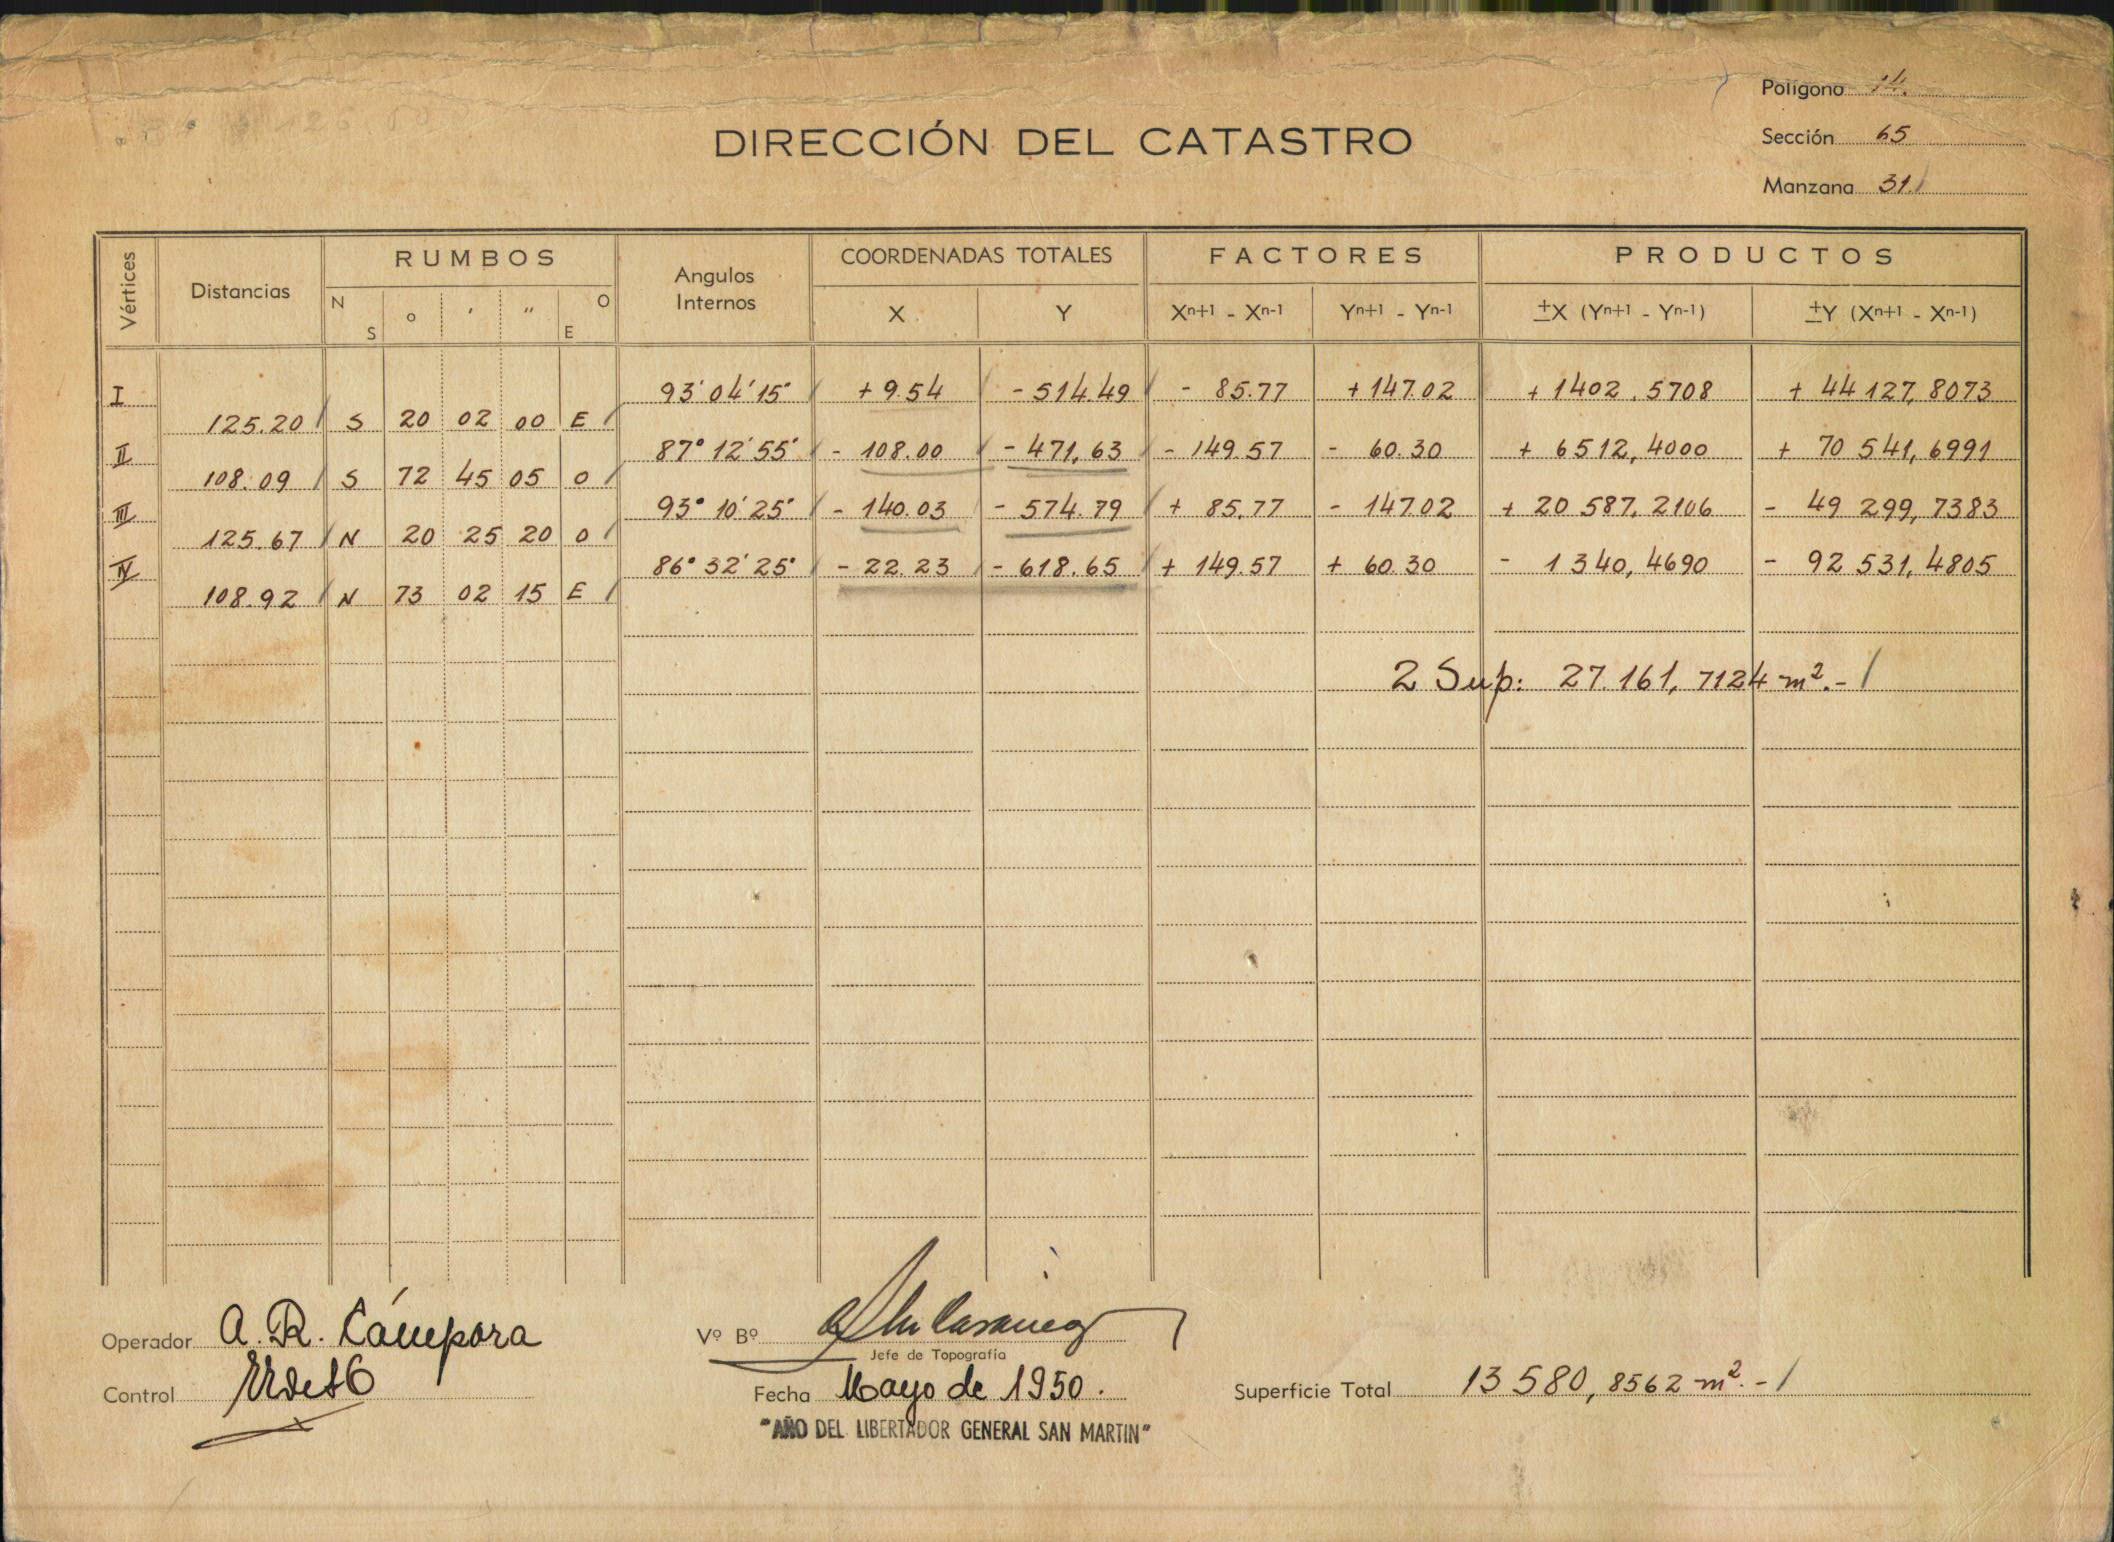 Polígono 14.
DIRECCIÓN DEL CATASTRO
Sección 65
Manzana 31
Vértices Distancias RUMBOS Angulos Internos COORDENADAS TOTALES FACTORES PRODUCTOS
N S o ' " O E X Y Xn+1 - Xn-1 Yn+1 - Yn-1 ±X (Yn+1 - Yn-1) ±Y (Xn+1 - Xn-1)
I 93° 04' 15" + 9.54 - 514.49 - 85.77 + 147.02 + 1402.5708 + 44 127,8073
125.20 S 20 02 00 E
II 87° 12' 55" - 108.00 - 471,63 - 149.57 - 60.30 + 6512,4000 + 70 541,6991
108.09 S 72 45 05 O
III 93° 10' 25" - 140.03 - 574.79 + 85.77 - 147.02 + 20 587,2106 - 49 299,7383
125.67 N 20 25 20 O
IV 86° 32' 25" - 22.23 - 618.65 + 149.57 + 60.30 - 1340,4690 - 92 531,4805
108.92 N 73 02 15 E
2 Sup: 27.161,7124 m².-
Operador A. R. Cámpora
Vº Bº
Jefe de Topografía
Control
Fecha Mayo de 1950.
Superficie Total 13 580,8562 m².-
"AÑO DEL LIBERTADOR GENERAL SAN MARTIN"